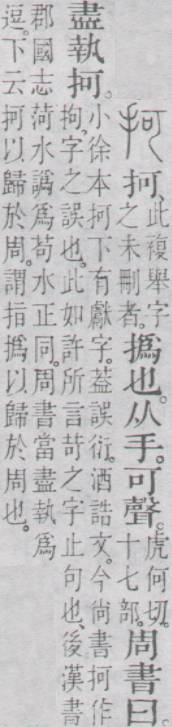 抲 抲，此複舉字之未刪者。撝也。从手。可聲。虎何切。十七部。周書曰。
盡執抲。小徐本抲下有獻字。葢誤衍。酒誥文。今尙書抲作
拘，字之誤也。此如許所言苛之字止句也。後漢書
郡國志菏水譌爲苟水正同。周書當盡執爲
逗。下云抲以歸於周。謂指撝以歸於周也。